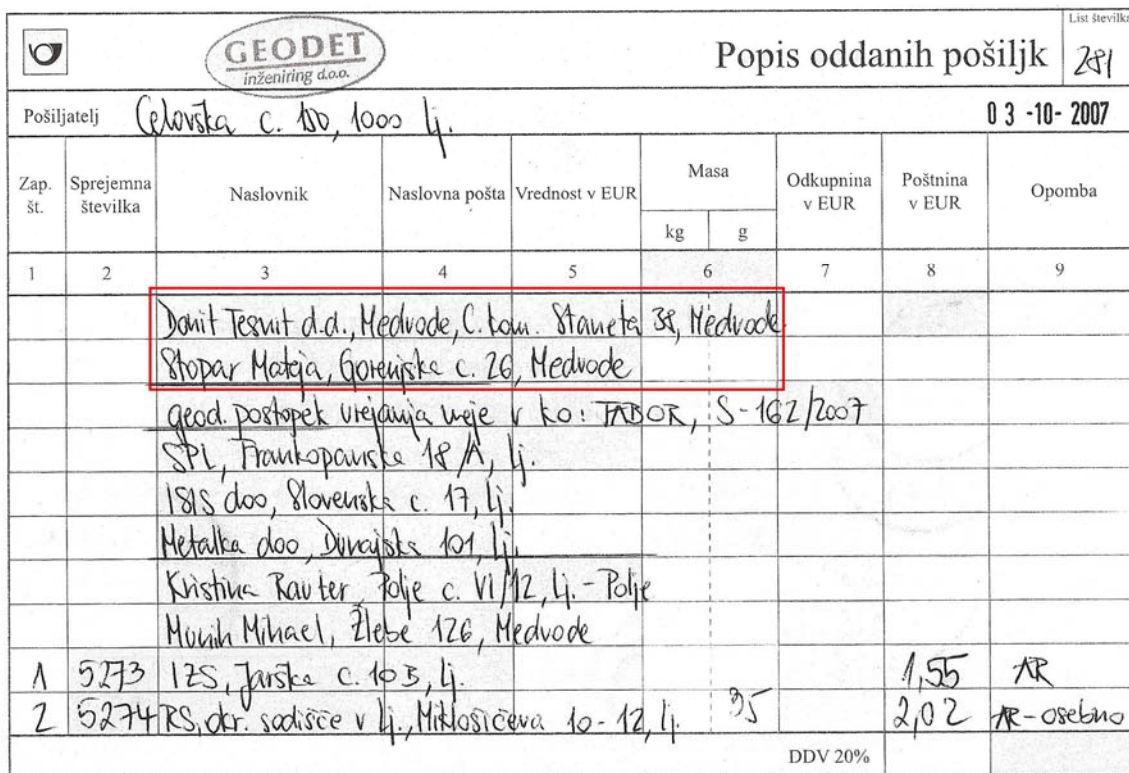 List številka
GEODET
inženiring d.o.o.
Popis oddanih pošiljk
281
Pošiljatelj
Celovška c. 150, 1000 Lj.
03 -10- 2007
Zap. št.
Sprejemna številka
Naslovnik
Naslovna pošta
Vrednost v EUR
Masa
kg
g
Odkupnina v EUR
Poštnina v EUR
Opomba
1 2 3 4 5 6 7 8 9
Donit Tesnit d.d., Medvode, C. kom. Staneta 38, Medvode
Stopar Mateja, Gorenjska c. 26, Medvode
geod. postopek urejanja meje v ko: TABOR, S-162/2007
SPL, Frankopanska 18/A, Lj.
ISIS doo, Slovenska c. 17, Lj.
Metalka doo, Dunajska 101, Lj.
Kristina Rauter, Polje c. VI/12, Lj. - Polje
Munih Mihael, Žlebe 126, Medvode
1 5273 IZS, Jarška c. 10B, Lj. 1,55 AR
2 5274 RS, okr. sodišče v Lj., Miklošičeva 10-12, Lj. 35 2,02 AR-osebno
DDV 20%